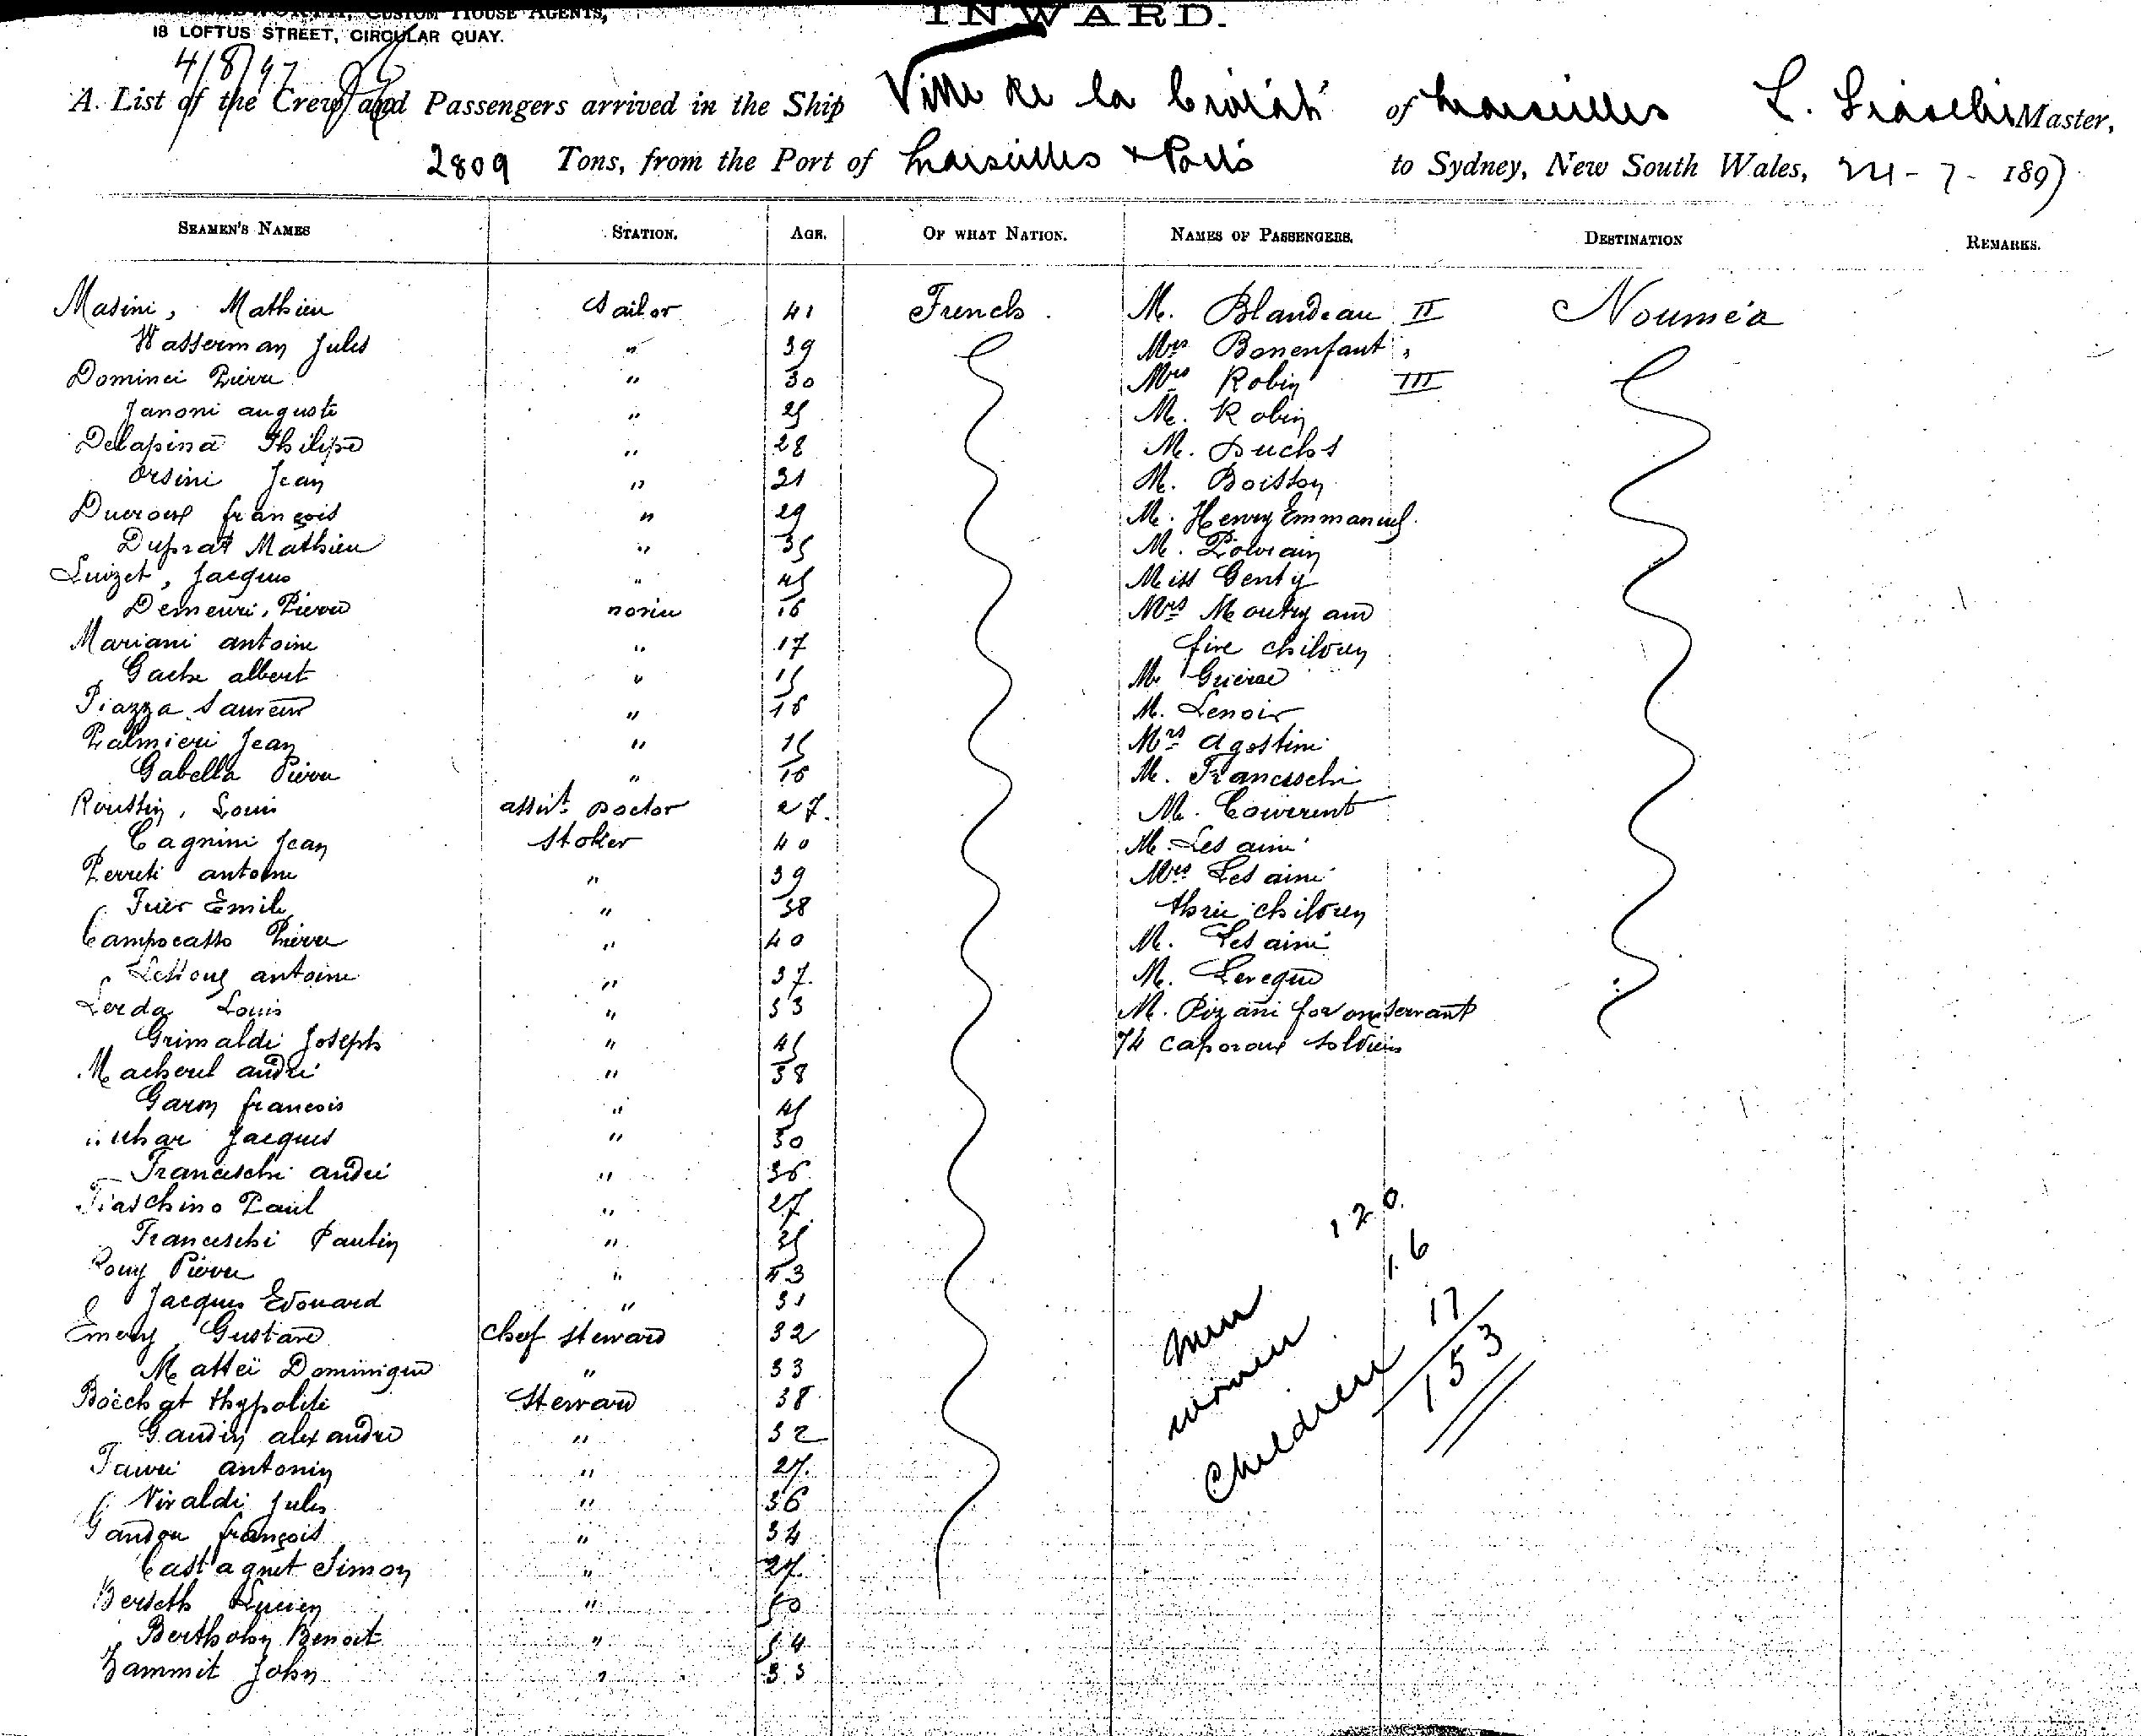 CUSTOM HOUSE AGENTS,
18 LOFTUS STREET, CIRCULAR QUAY.
INWARD.
4/8/97
A List of the Crew and Passengers arrived in the Ship Ville de la Ciotat of Marseilles L. Master,
2809 Tons, from the Port of Marseilles & Ports to Sydney, New South Wales, 24-7-1897
SEAMEN'S NAMES STATION. AGE. OF WHAT NATION. NAMES OF PASSENGERS. DESTINATION REMARKS.
Masini, Mathieu Sailor 41 French M. Blandeau II Nouméa
Wasserman Jules " 39 Mrs Bonenfant "
Dominci Pierre " 30 Mrs Robin III
Janoni auguste " 25 M. Robin
Delapina Philipe " 28 M. Duclos
Orsini Jean " 31 M. Boisson
Ducroux françois " 29 M. Henry Emmanuel
Duprat Mathieu " 35 M.
Luizet, Jacques " 45 Miss Genty
Demeuri, Pierre novice 16 Mrs Moutry and
Mariani antoine " 17 five children
Gache albert " 15 M.
Piazza Sauveur " 16 M. Lenoir
Palmieri Jean " 15 Mrs Agostini
Gabella Pierre " 16 M. Franceschi
Roustin, Louis assist. Doctor 27 M.
Cagnini Jean Stoker 40 M. Lesainé
Perreti antoine " 39 Mrs Lesainé
Emile " 38 three children
Campocasso Pierre " 40 M. Lesainé
antoine " 37 M. Leveque
Lerda Louis " 33 M. Pizani for one servant
Grimaldi Joseph " 45 74 caporaux soldiers
andré " 38
françois " 45
Jacques " 30
Franceschi andré " 36
Fiaschino Paul " 27
Franceschi Paulin " 35
Pierre " 43
Jacques Edouard " 31
Emery Gustave Chef steward 32
Matteï Dominique " 33
Boëchat Hypolite Steward 38
Gaudin alexandre " 32
antonin " 27
Vivaldi Jules " 36
Gandou françois " 34
Castagnet Simon " 27
Berseth Lucien " 50
Benoit " 54
Zammit John " 33
Men 120
women 16
Children 17
153